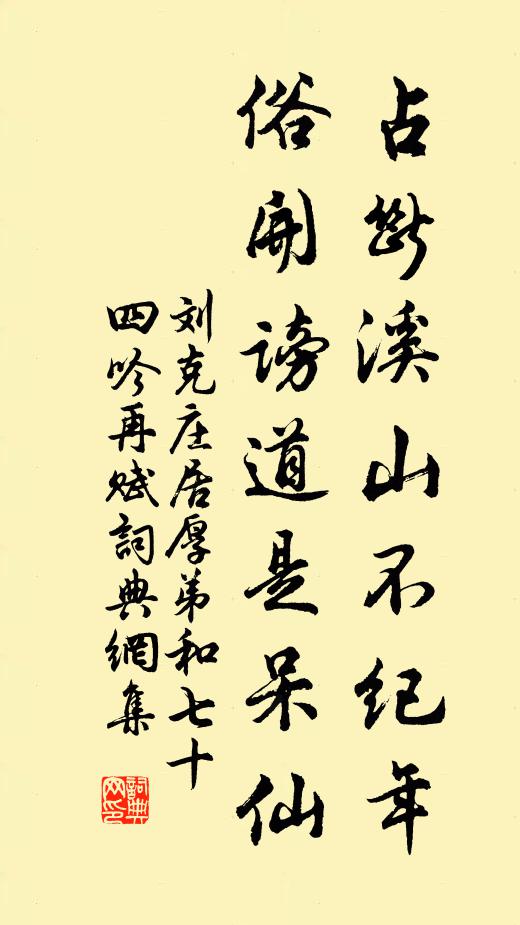 占断溪山不纪年
俗开谤道是呆仙
刘克庄居厚弟和七十
四吟再赋詞典網集
詞典
网印